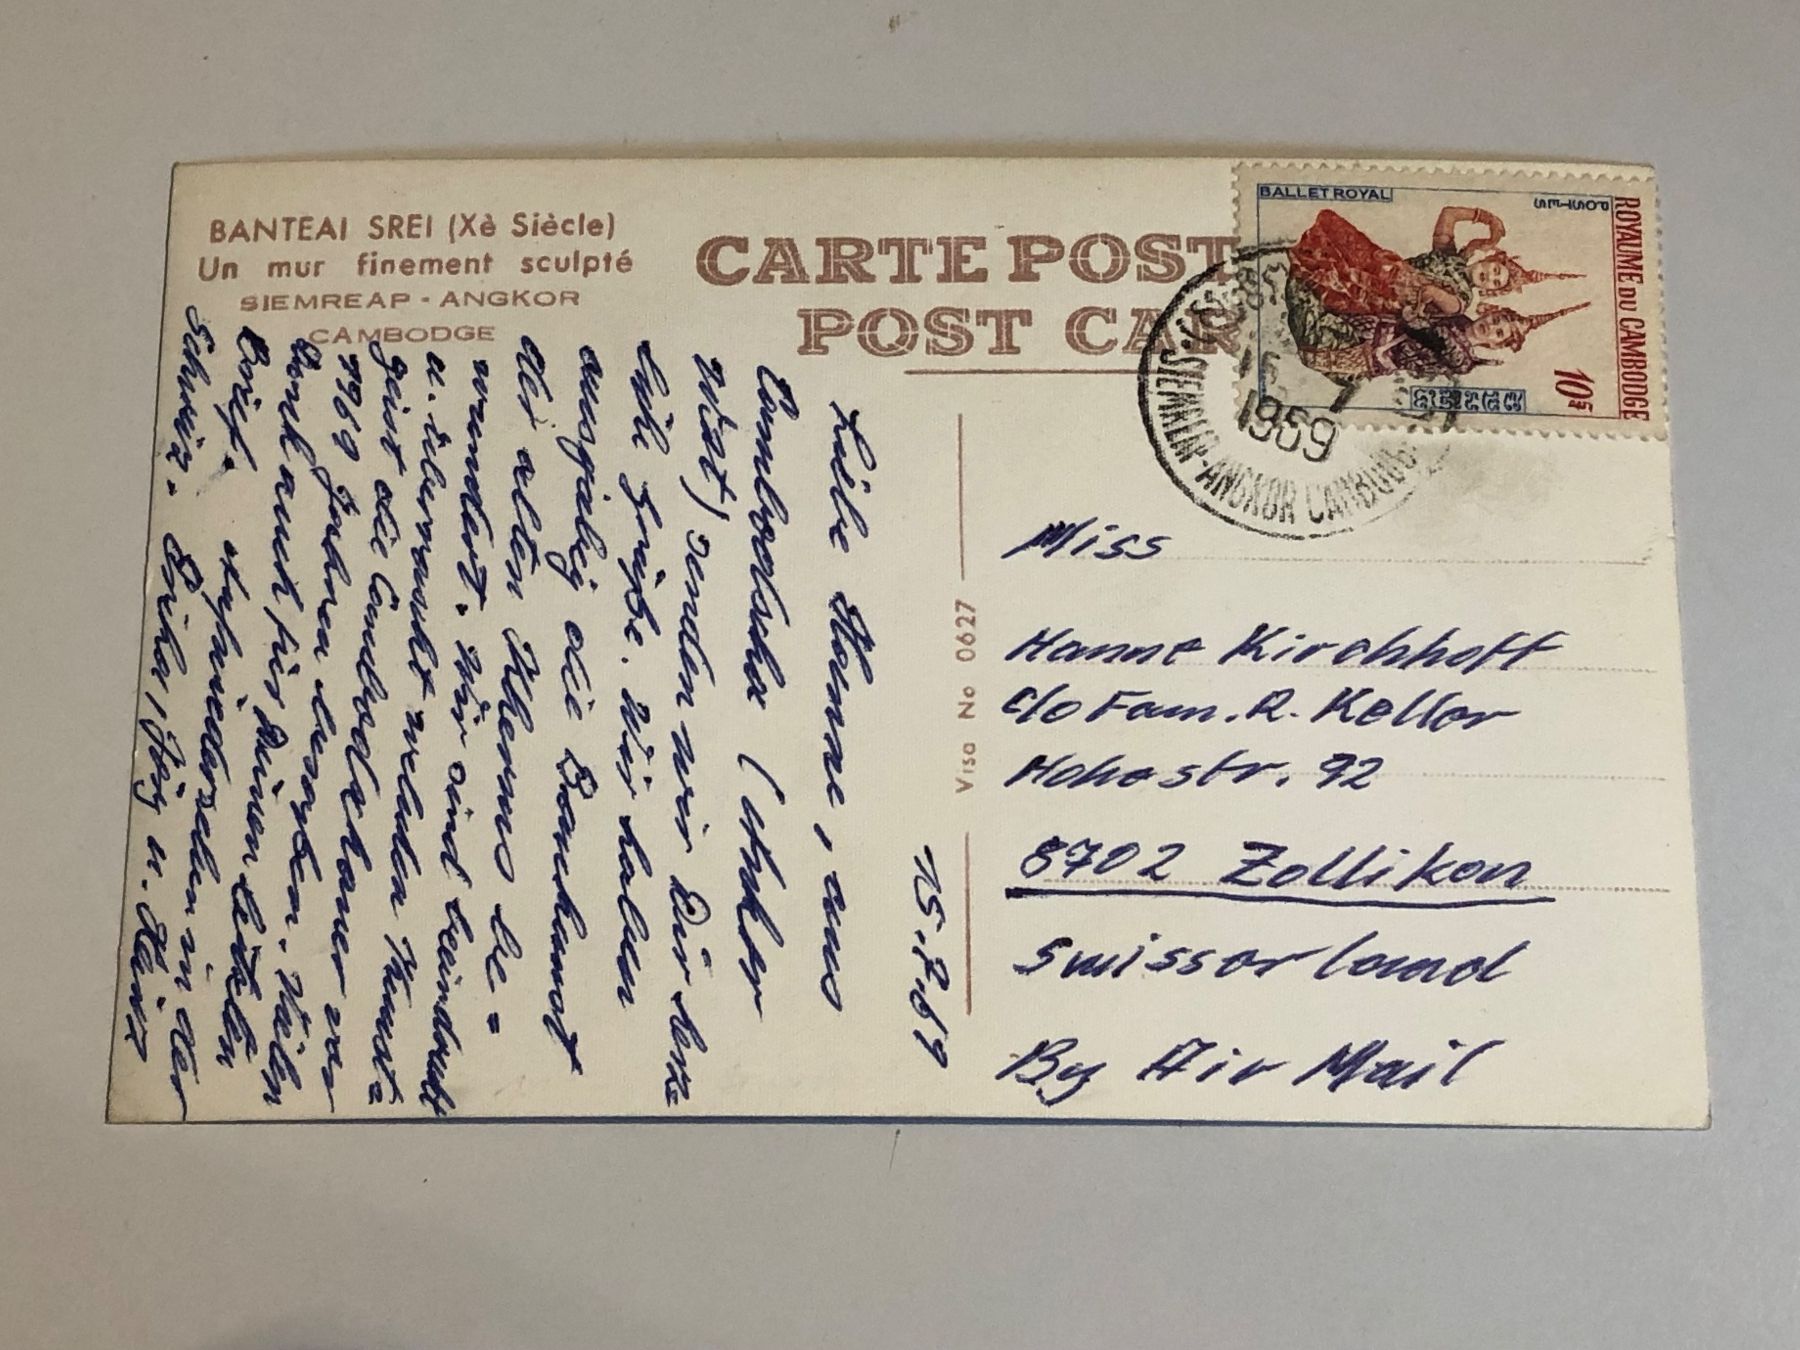 BANTEAI SREI (Xè Siècle)
Un mur finement sculpté
SIEMREAP - ANGKOR
CAMBODGE
CARTE POST
POST CAR
BALLET ROYAL
POSTES
ROYAUME DU CAMBODGE
10F
SIEMREAP-ANGKOR CAMBODGE
1969
Visa No 0627
15.7.69
Liebe Hanne, aus
Cambodscha (Ankor
Wat) senden wir Dir lenz
liche Grüße. Wir haben
ausgiebig die Baukunst
der alten Kherms be=
wundert. Wir sind beeindruckt
u. überrascht welchen Kunst=
geist die Cambodschaner vor
1969 Jahren besaßen. Vielen
Dank auch für Deinen lieben
Brief. Aufwiedersehen in der
Schweiz. Erika, Jörg u. Heinz
Miss
Hanne Kirchhoff
c/o Fam. R. Keller
Hohestr. 92
8702 Zollikon
Swisserland
By Air Mail